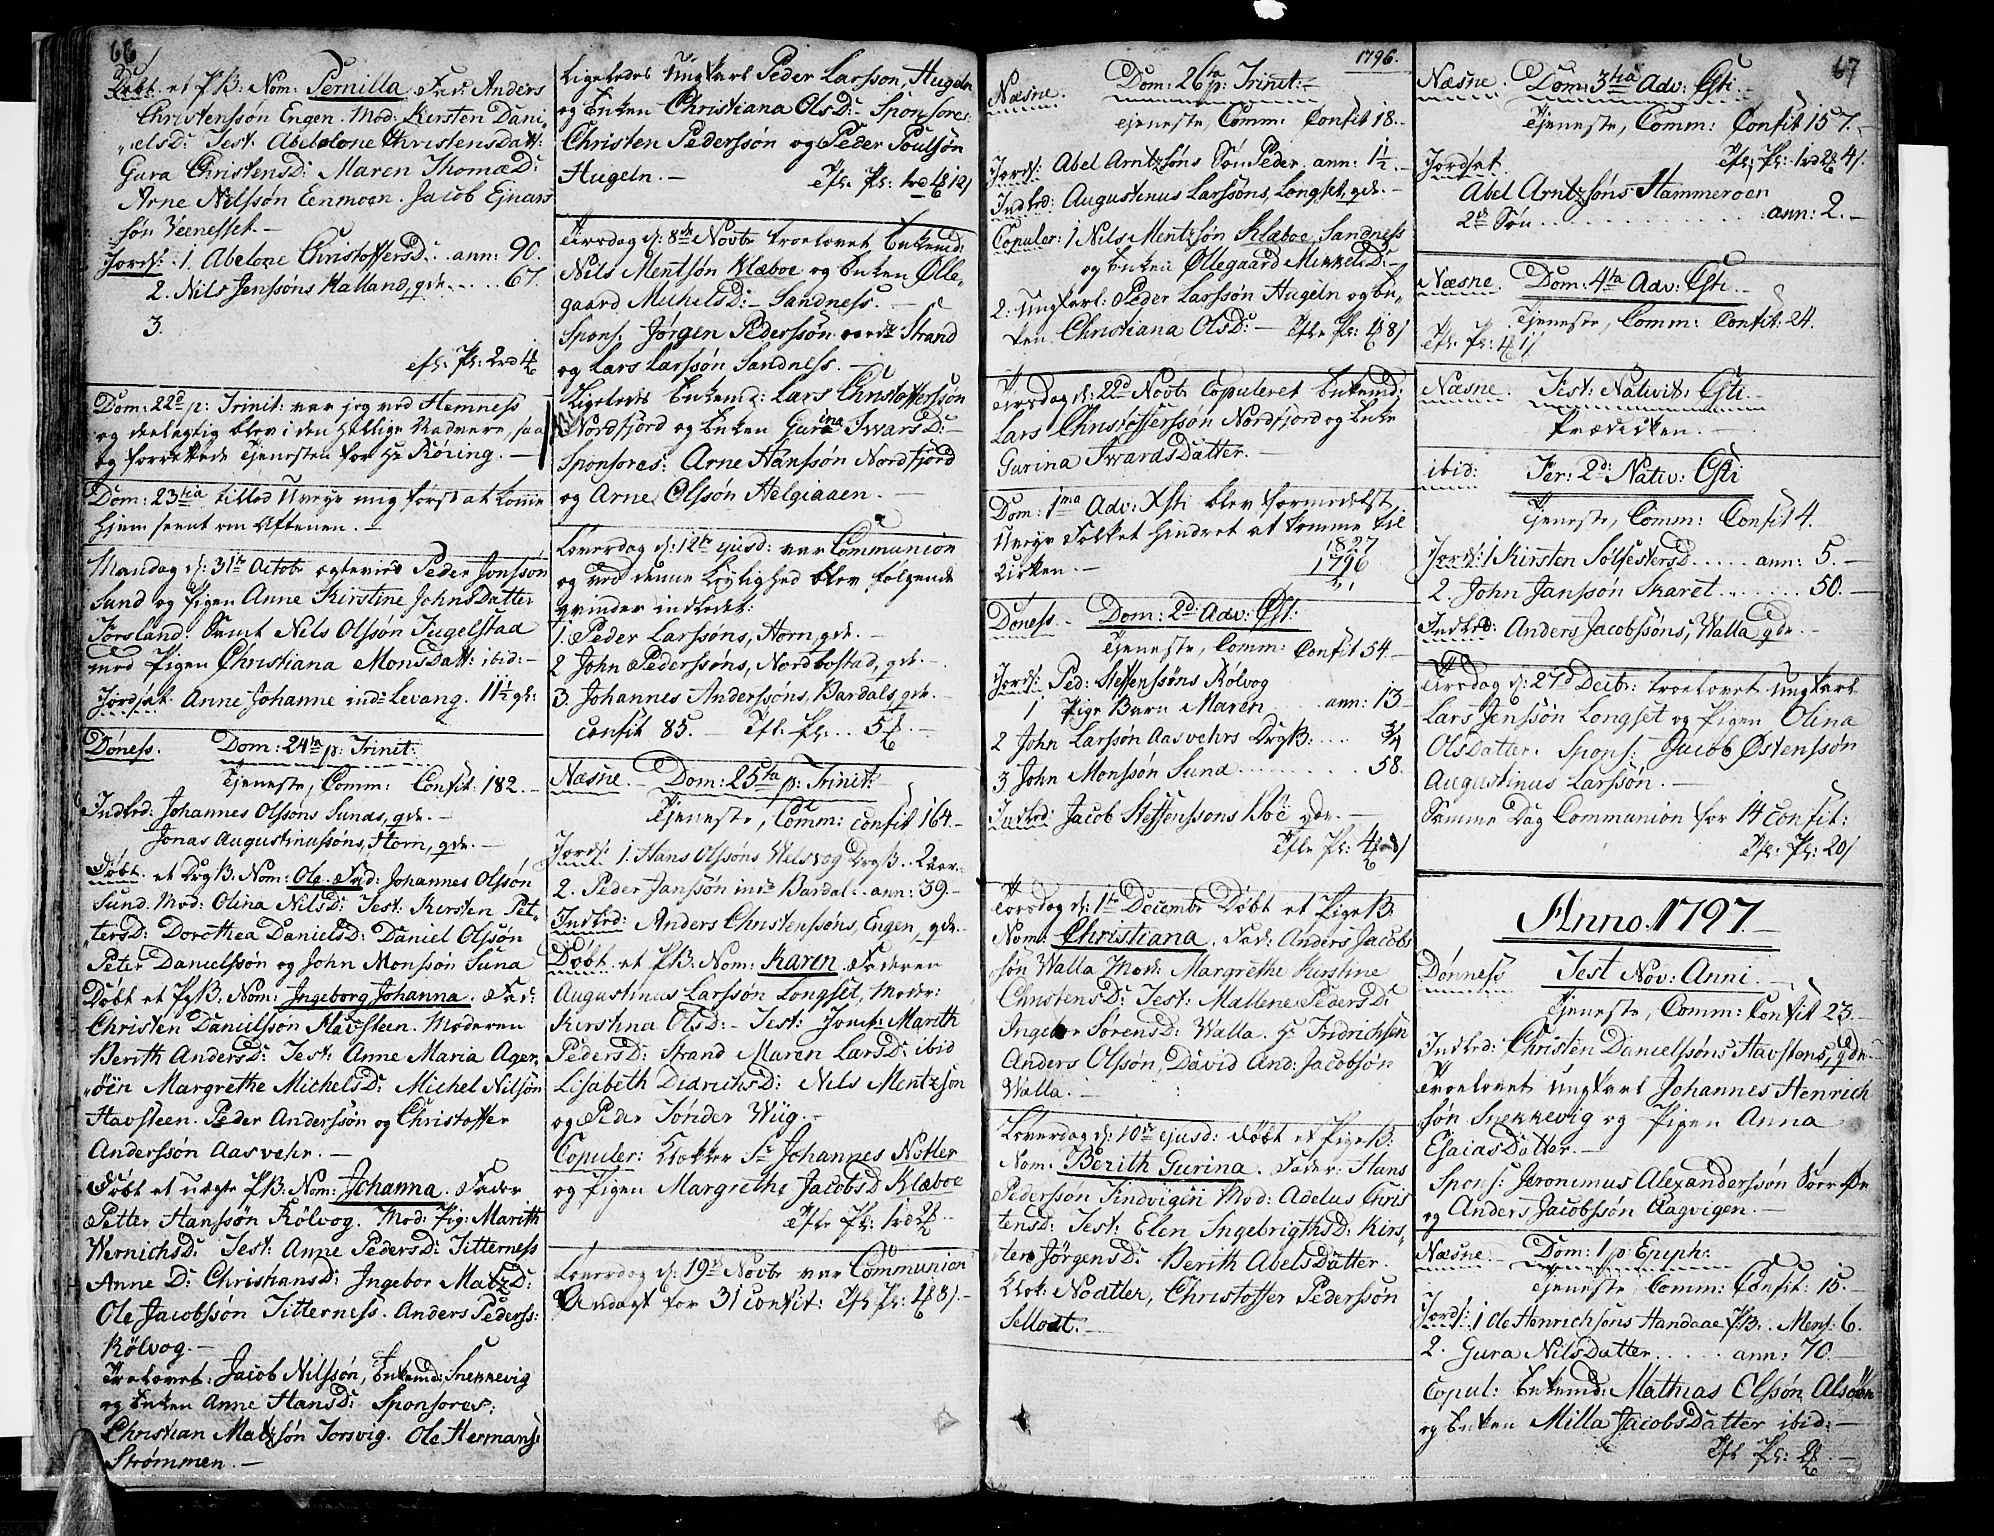 66
Døbt et PB: Nom: Pernilla. Fad: Anders
Christenssön Engen. Mod: Kirsten Dani
elsD: Test: Abelone Christensdatt:
Gura ChristensD: Maren ThomæD:
Arne Nilssön Eenmoen. Jacob Ejnars
sön Veenesset.
Jords: 1. Abelone ChristoffersD: ann: 90.
2. Nils Jenssöns Kalland, qde 67.
3.
Ofl: Pf: 2rd 4
Dom: 22d p: Trinit: var jeg ved Hemness
og deelagtig blev i den hellige Nadvere, saa
og forrettede Tjenesten for Hr Röring.
Dom: 23tia tillod Uveyr mig först at komme
hjem seent om Aftenen.
Mandag d: 31te Octobr ægteviet Peder Jonssön
Sund og Pigen Anne Kirstine JohnsDatter
Forsland. Samt Nils Olssön Tugelstad
med Pigen Christiana MonsDatt: ibid:
Jordsat Anne Johanne ind: Levang. 11½ gl:
Döness. Dom: 24ta p: Trinit:
Tjeneste, Comm: Confit: 182.
Indled: Johannes Olssöns Sunds, qde.
Jonas Augustinussöns, Horn, qde.
Døbt et DrgB: Nom: Ole. Fad: Johannes Olssön
Sund. Mod: Olina NilsD: Test: Kirsten Pet
tersD: Dorothea DanielsD: Daniel Olssön
Peter Danielssön og John Monssön Sund
Døbt et PgB: Nom: Ingeborg Johanna. Fad:
Christen Danielssön Havsteen. Moderen
Berith AndersD: Test: Anne Maria Ager
öen Margrethe MichelsD: Michel Nilssön
Havsteen. Peder Anderssön og Christoffer
Anderssön Aasvehr.
Døbt et uægte PB: Nom: Johanna. Fader
Petter Hanssön Kölvog. Mod: Pig: Marith
WernichsD: Test: Anne PedersD: Titterness
Anne D: ChristiansD: Ingebor MatzD:
Ole Jacobssön Titterness. Anders Peders:
Kölvog.
Trolovet: Jacob Nilssön, Enkemd: Snekkevig
og Enken Anne HansD: Sponsores:
Christian Matzsön Torsvig. Ole Hermans:
Strømmen.
Ligeledes Ungkarl Peder Larsson, Hugeln
og Enken Christiana OlsD: Sponsores:
Christen Pederssön og Peder Poulsön
Hugeln. Ofl: Pf: 1rd 4 12s
Tirsdag d: 8de Novbr troelovet Enkemd:
Nils Mentsön Klæboe og Enken Ølle
gaard MichelsD: Sandness.
Spons: Jörgen Pederssön Strand
og Lars Larssön Sandness.
Ligeledes Enkemd: Lars Christofferssön
Nordfjord og Enken Gurina IwarsD:
Sponsores: Arne Hanssön Nordfjord
og Arne Olssön Helgiaaen.
Löverdag d: 12te ejusd: var Communion
og ved denne Lejlighed blev følgende
qvinder indledet:
1. Peder Larssöns, Horn, qde.
2 John Pederssöns, Nordbostad, qde.
3. Johannes Anderssöns, Bardals, qde.
Confit 85. Ofl: Pf: 5
Næsne. Dom: 25ta p: Trinit:
Tjeneste, Comm: Confit 164.
Jords: 1. Hans Olssöns Wilsvog DrgB. 2
2. Peder Janssön ind: Bardal. ann: 39.
Indled: Anders Christenssöns, Engen, qde.
Døbt et PB: Nom: Karen. Faderen
Augustinus Larssön Longset, Moder:
Kirstina OlsD: Test: Jomf: Marith
PedersD: Strand Maren LarsD: ibid
Lisabeth DidrichsD: Nils Mentzsön
og Peder Tönder Wiig.
Copuler: Klokker Sr Johannes Notler
og Pigen Margrethe JacobsD Klæboe
Ofl: Pf: 1rd 2
Löverdag d: 19de Novbr var Communion
Andagt for 31 confit: Ofl: Pf: 4 8s.
1796.
Næsne. Dom: 26ta p: Trinit:
Tjeneste, Comm: Confit 18.
Jords: Abel Arntzsöns Sön Peder. ann: 1½.
Indled: Augustinus Larssöns, Longset, qde.
Copuler: 1 Nils Mentzsön Klæboe, Sandness
og Enken Øllegaard MikkelsD:
2. Ungkarl: Peder Larssön Hugeln og En
ken Christiana OlsD: Ofl: Pf: 1 8s
Tirsdag d: 22d Novbr Copuleret Enkemd:
Lars Christofferssön Nordfjord og Enke
Gurina IwardsDatter.
Dom: 1ma Adv: Xsti blev formedelst
Uveyr Folket hindret at komme til
Kirken.
1827
1796
Döness. Dom: 2d: Adv: Xsti:
Tjeneste, Comm: Confit 54.
Jords: Ped: Steffenssöns Kölvog
1 Pige Barn Maren ann: 13
2 John Larssön Aasvehrs DrgB: ¾
3 John Monssön Sund 58.
Indled: Jacob Steffenssöns Böe qde.
Ofl: Pf: 4
Torsdag d: 1te Decembr Døbt et PigeB:
Nom: Christiana. Fad: Anders Jacobs
sön Walla Mod: Margrethe Kirstine
ChristensD: Test: Mallene PedersD:
Ingebor SörensD: Walla. Hr Fridrichsen
Anders Olssön, David And: Jacobsön
Walla.
Löverdag d: 10de ejusd: Døbt et PigeB:
Nom: Berith Gurina. Fader: Hans
Pederssön Findvigin Mod: Adelus Chris
tensD: Test: Elen IngebrigthsD: Kirs
ten JörgensD: Berith AbelsDatter.
Klok: Nodtler, Christoffer Pederssön
Selloat.
67
Næsne. Dom: 3tia Adv: Xsti.
Tjeneste, Comm: Confit 157.
Jordsat Ofl: Pf: 1rd 2 4s.
Abel Arntzsöns Hammeroen
2de Sön ann: 2.
Næsne. Dom: 4ta Adv: Xsti.
Tjeneste, Comm: Confit: 24.
Ofl: Pf: 4 1s
Næsne. Fest: Nativit: Xsti.
Prædiken.
ibid: Fer: 2d: Nativ: Xsti
Tjeneste, Comm: Confit 4.
Jords: 1 Kirsten SölfestersD ann: 5.
2. John Janssön Skaret 50.
Indled: Anders Jacobssöns, Walla qde.
Tirsdag d: 27d Decbr: troelovet Ungkarl
Lars Jenssön Longset og Pigen Olina
OlsDatter. Spons: Jacob Østenssön
Augustinus Larssön.
Samme Dag Communion for 14 confit:
Ofl: Pf: 20s
Anno. 1797.
Dönness Fest Nov: Anni.
Tjeneste, Comm: Confit 23.
Indled: Christen Danielssöns Havstens, qde.
Troelovet Ungkarl Johannes Henrich
sön Snekkevig og Pigen Anna
EsaiasDatter.
Spons: Jeronimus Alexanderssön Sörr Øe
og Anders Jacobssön Aagvigen.
Næsne Dom: 1 p: Epiph:
Tjeneste, Comm: Confit: 15.
Jords: 1 Ole Henrichsöns Handaae PB. Mens: 6.
2. Gura NilsDatter ann: 70.
Copul: Enkemd: Mathias Olssön Alsöen
og Enken Milla JacobsDatter ibid:
Ofl: Pf: 2